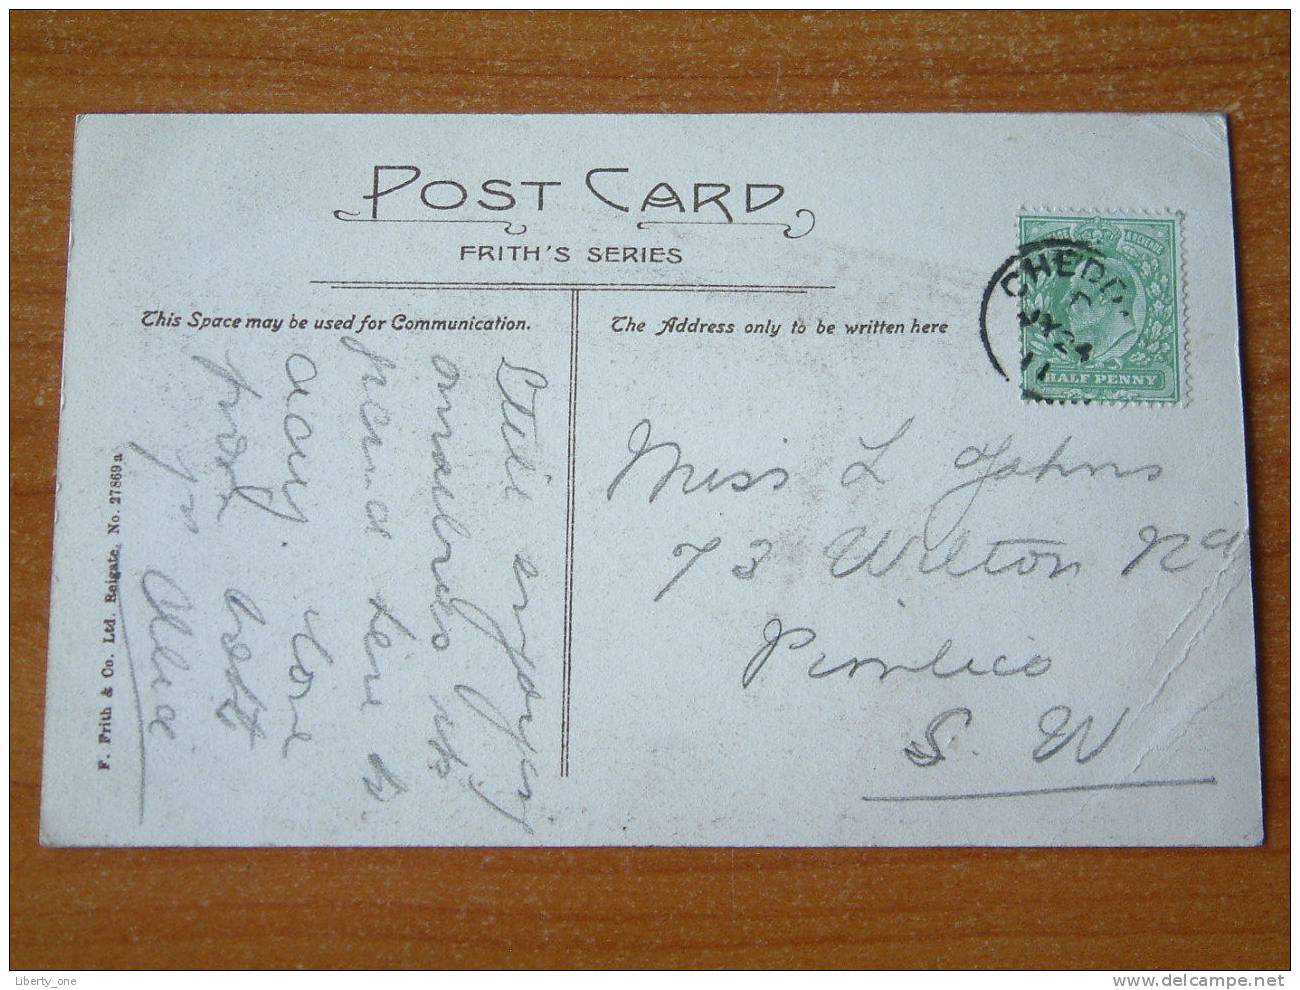 POST CARD
FRITH'S SERIES
This Space may be used for Communication.
The Address only to be written here
Still enjoying
ourselves
here to
day. Love
from both
yrs Alice
Miss L Johns
73 Wilton Rd
Pimlico
S. W
CHEDD
JY 24
11
POSTAGE REVENUE
HALF PENNY
F. Frith & Co. Ltd. Reigate. No. 27869a
Liberty_one
www.delcampe.net